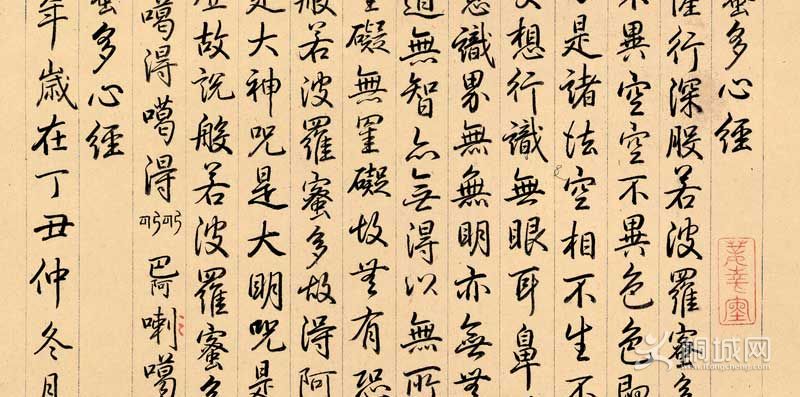 蜜多心經
薩行深般若波羅蜜多
不異空空不異色色即
是諸法空相不生不
受想行識無眼耳鼻
意識界無無明亦無無
道無智亦無得以無所
罣礙無罣礙故無有恐
般若波羅蜜多故得阿
是大神咒是大明咒是
虛故說般若波羅蜜多
噶得噶得巴阿喇噶
蜜多心經
年歲在丁丑仲冬月
桐城网
www.itongcheng.com